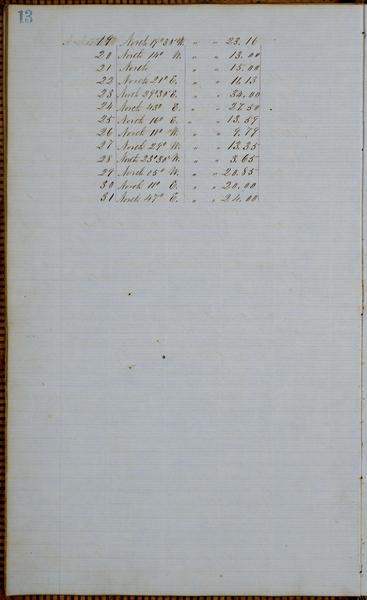 13
19 North 19° 30' W. " " 23.16
20 North 14° W. " " 13.00
21 North " " 15.00
22 North 21° E. " " 11.13
23 North 29° 30' E. " " 30.00
24 North 43° E. " " 27.50
25 North 16° E. " " 13.59
26 North 11° W. " " 9.79
27 North 29° W. " " 13.35
28 North 23° 30' W. " " 3.65
29 North 05° W. " " 20.85
30 North 11° E. " " 20.00
31 North 47° E. " " 24.00